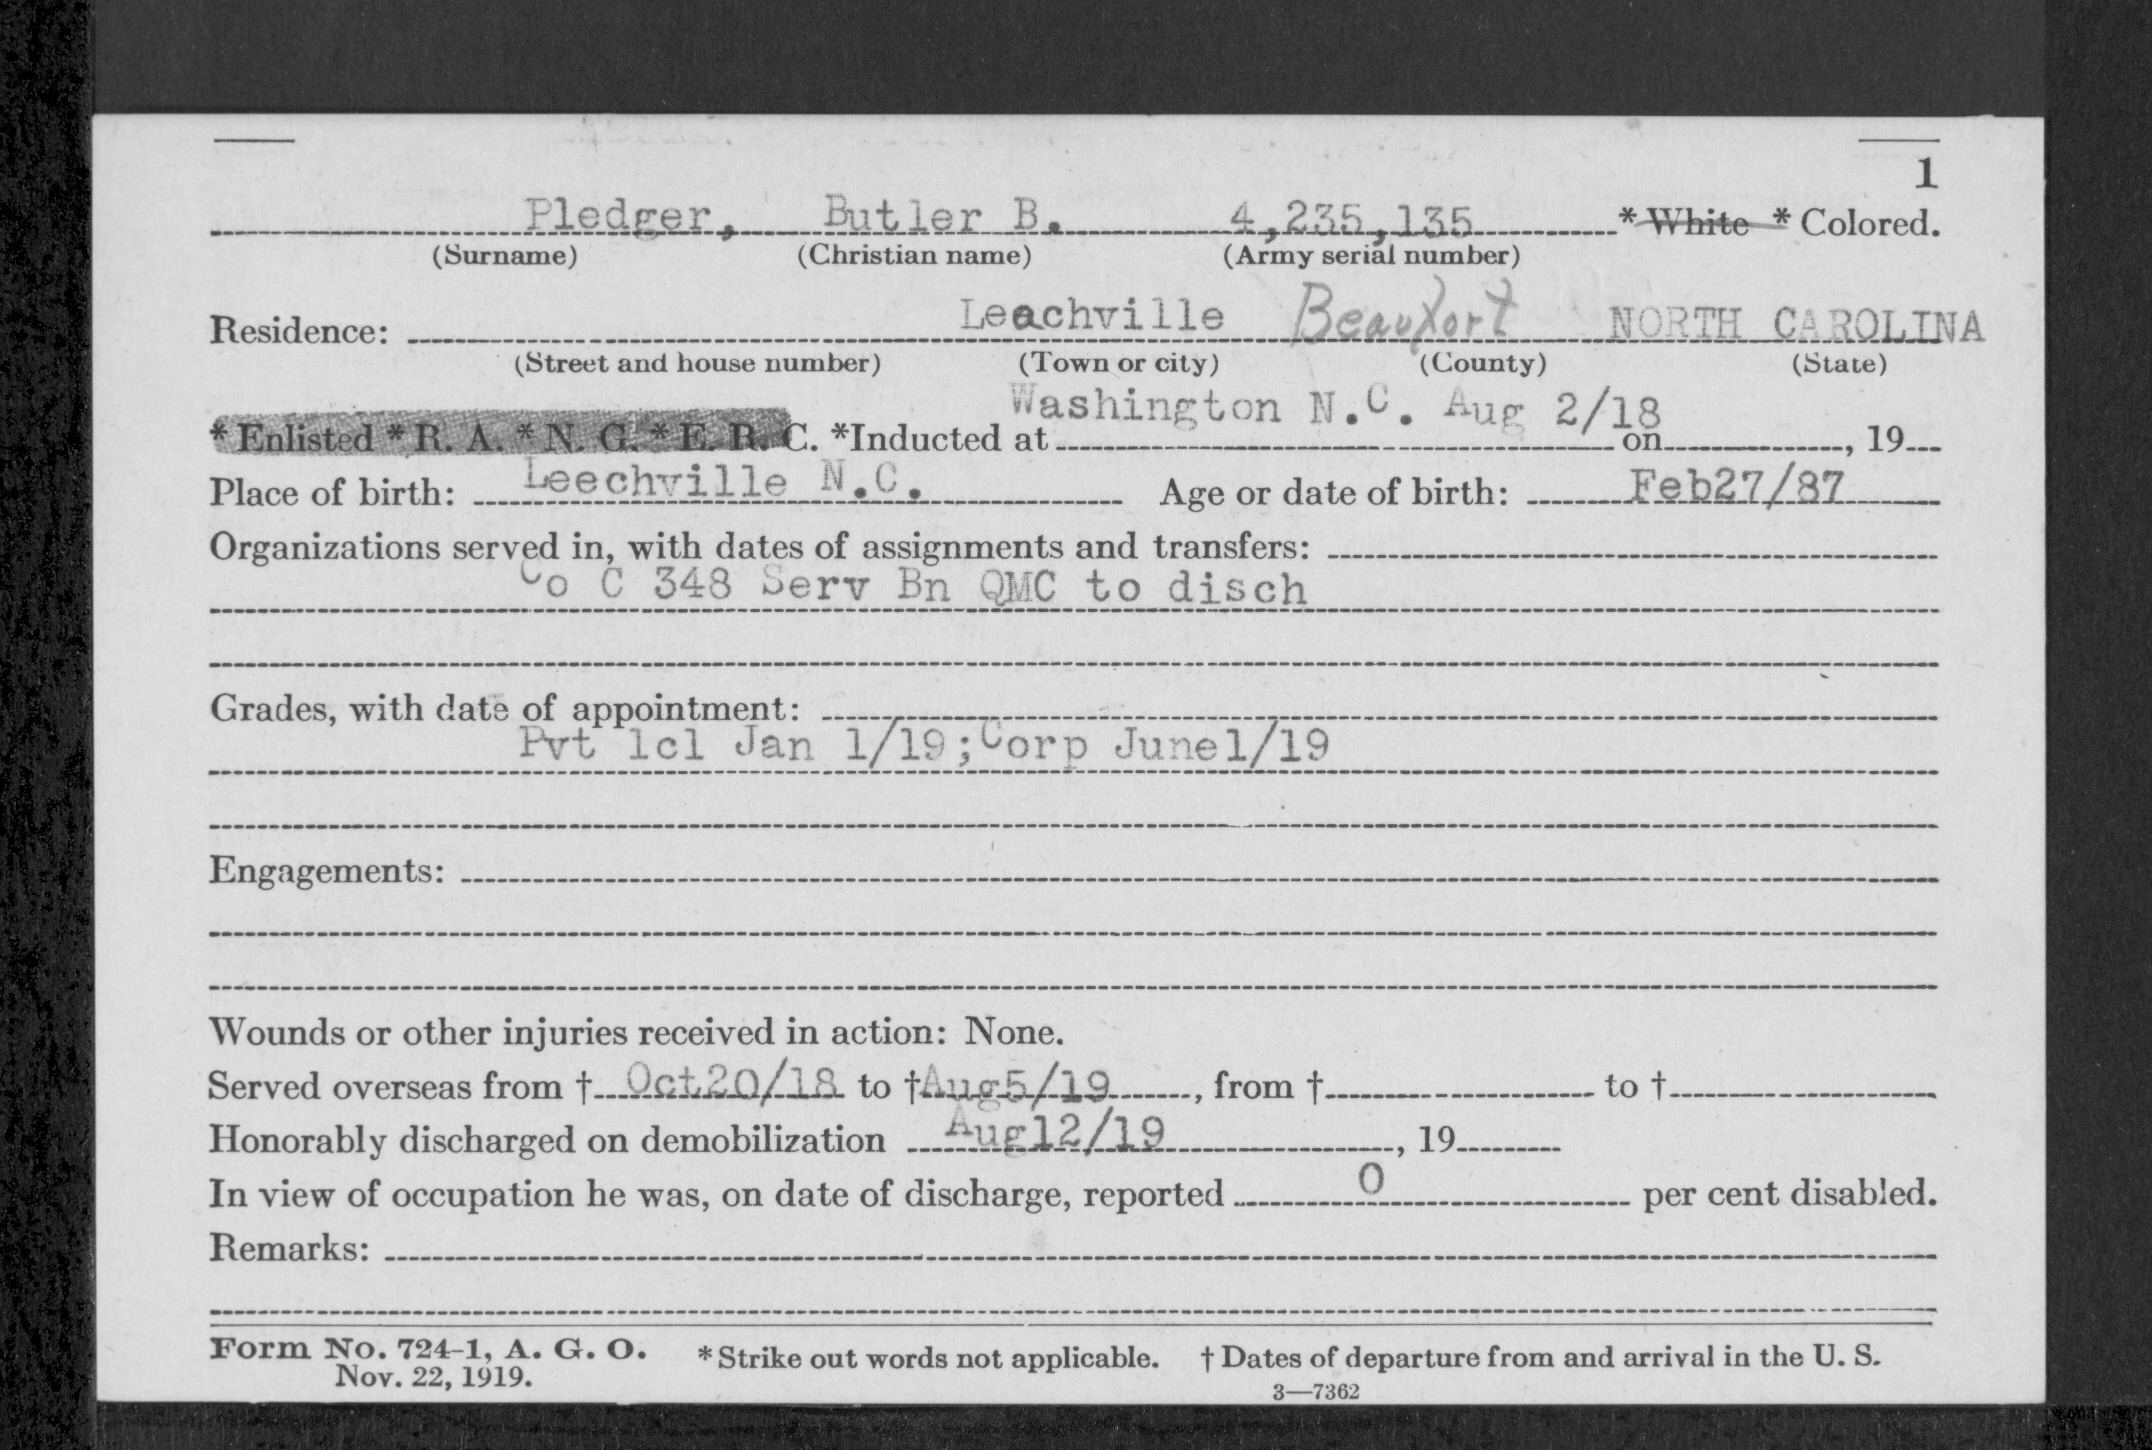 1
Pledger, Butler B. 4,235,135 * White * Colored.
(Surname) (Christian name) (Army serial number)
Residence: Leachville Beaufort NORTH CAROLINA
(Street and house number) (Town or city) (County) (State)
Washington N.C. Aug 2/18
* Enlisted * R. A. * N. G. * E. R. C. *Inducted at on , 19
Place of birth: Leechville N.C. Age or date of birth: Feb27/87
Organizations served in, with dates of assignments and transfers:
Co C 348 Serv Bn QMC to disch
Grades, with date of appointment:
Pvt 1cl Jan 1/19;Corp June1/19
Engagements:
Wounds or other injuries received in action: None.
Served overseas from † Oct20/18 to †Aug5/19, from † to †
Honorably discharged on demobilization Aug12/19, 19
In view of occupation he was, on date of discharge, reported 0 per cent disabled.
Remarks:
Form No. 724-1, A. G. O. * Strike out words not applicable. † Dates of departure from and arrival in the U. S.
Nov. 22, 1919.
3—7362